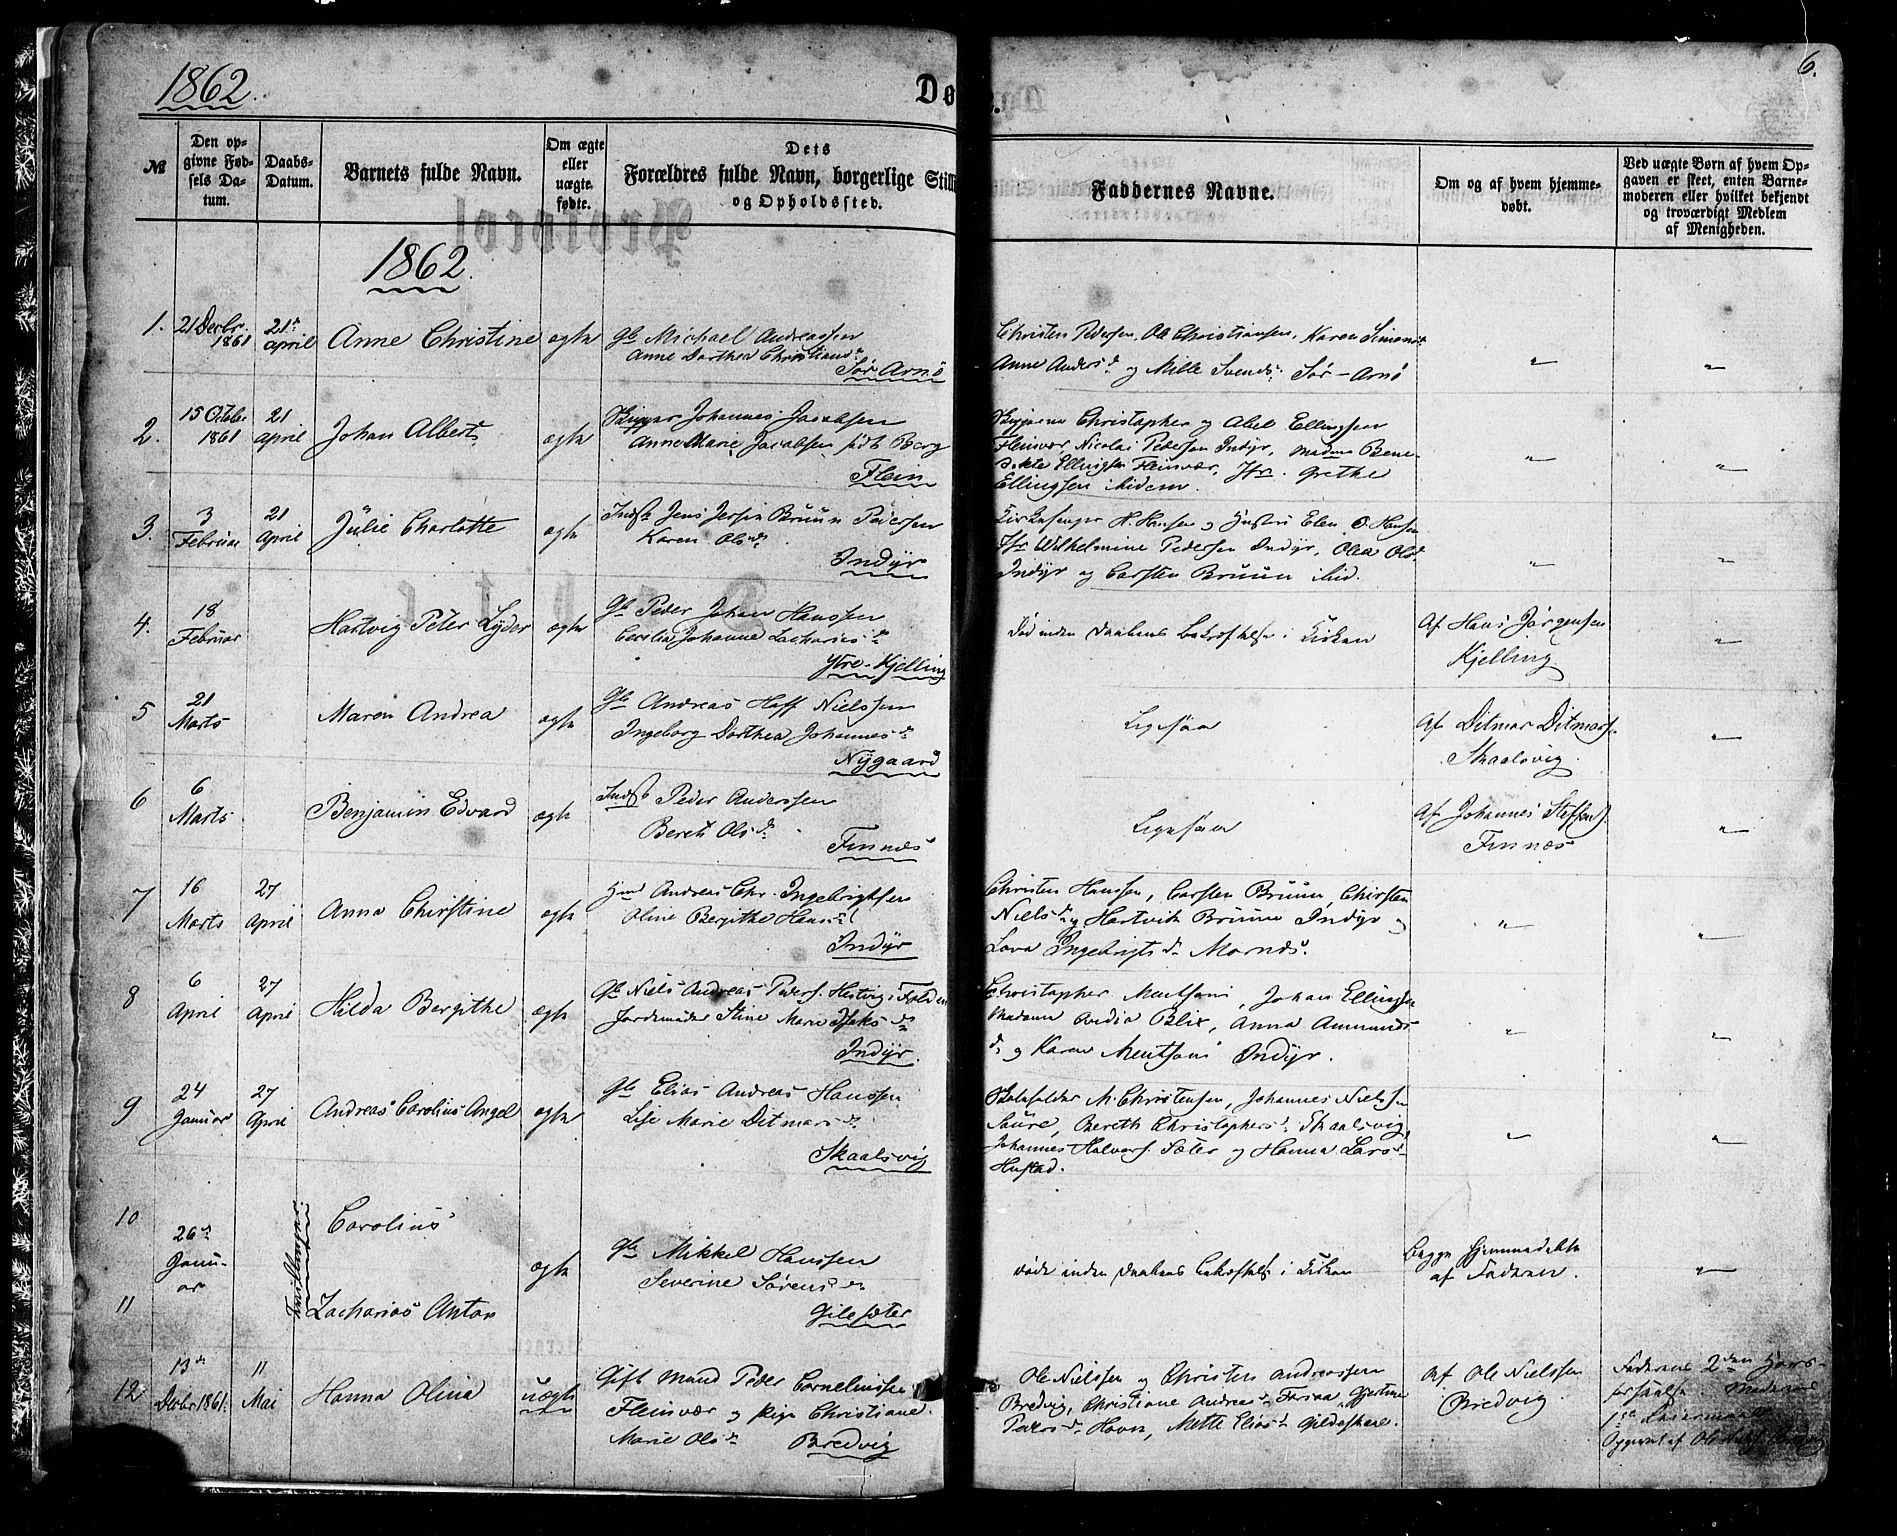 1862.
Dø
6.
№
Den op-
givne Fød-
sels Da-
tum.
Daabs-
Datum.
Barnets fulde Navn.
Om ægte
eller
uægte
fødte.
Dets
Forældres fulde Navn, borgerlige Still
og Opholdssted.
Faddernes Navne.
Om og af hvem hjemme-
døbt.
Ved uægte Børn af hvem Op-
gaven er skeet, enten Barne-
moderen eller hvilket bekjendt
og troværdigt Medlem
af Menigheden.
1862.
1. 21 Decbr. 1861 21de april Anne Christine ægte
Gb Michael Andreassen
Anne Dorthea Christiansdr
Sør Arnø
Christen Pedersen, Ole Christiansen, Karen Simonsd
Anne Andersdr og Mille Svendsdr Sør-Arnø
" "
2. 15 Octobr 1861 21 april Johan Albert ægte
Skipper Johannes Jacobsen
Anne Marie Jacobsen født Berg
Flein
Christopher og Abel Ellingsen
Fleinvær, Nicolai Pedersen Indyr, Madme Bene-
dikte Ellingsen Fleinvær, Jfr. Grethe
Ellingsen ibidem.
" "
3. 3 Februar 21 April Julie Charlotte ægte
Indst Jens Jersin Bruun Pedersen
Karen Olsdr
Indyr
Kirkesanger H. Hansen og Hustru Elen O. Hansen
Jfr Wilhelmine Pedersen Indyr, Olea Olsd.
Indyr og Carsten Bruun ibid.
" "
4. 18 Februar Hartvig Peter Lyder ægte
Gb Peder Johan Hanssen
Cecilia Johanna Zachariasdr
Ytre-Kjelling
Død inden Daabens Bekræftelse i Kirken
Af Hans Jørgensen
Kjelling
"
5 21 Marts Maren Andrea ægte
Gb Andreas Hoff Nielssen
Ingeborg Dorthea Johannesdr
Nygaard
Ligesaa
Af Ditmar Ditmars.
Skaalsvig.
"
6 6 Marts Benjamin Edvard ægte
Indst Peder Anderssen
Bereth Olsdr
Finnæs
Ligesaa
Af Johannes Steffens.
Finnæs
"
7 16 Marts 27 April Anna Christine ægte
Gmd Andreas Chr. Ingebrigtsen
Oline Bergithe Hansd
Indyr
Christen Hanssen, Carsten Bruun, Kirsten
Nielsdr og Hartvik Bruun Indyr og
Lova Ingebrigtsdr Mornæs.
" "
8 6 April 27 April Hilda Bergithe ægte
Gb Niels Andreas Peders. Hestvig i Folden
Jordemoder Stine Marie Isaksdr
Indyr.
Christopher Mentsoni, Johan Ellingsen
Madame Ovedia Blix, Anna Amunds
dr og Karen Mentsoni Indyr.
" "
9 24 Januar 27 April Andreas Carolius Angel ægte
Gb Elias Andreas Hanssen
Lise Marie Ditmarsdr
Skaalsvig
Skoleholder M. Christensen, Johannes Nielsen
Saure, Bereth Christophersd. Skaalsvig,
Johannes Halvors. Sæter og Hanna Larsd
Hustad.
" "
10 26de Janu-
ar
Tvillinger
Carolius
ægte
Gb Mikkel Hanssen
Severine Sørensdr
Gilesæter
døde inden Daabens Bekræftelse i Kirken
Begge hjemmedøbte
af Faderen.
"
11 Zacharias Anton
12 13de Decbr 1861. 11 Mai Hanna Olina uægte
Gift Mand Peder Corneliusse
Fleinvær og pige Christiane
Marie Olsdr Bredvig
Ole Nielssen og Christen Andreassen
Bredvig, Christiane Andreasd. Gjertrue
Pedersdr Havn, Mette Eliasd Gildeskaal.
Af Ole Nielssen
Bredvig
Faderens 2den Hoers-
forseelse. Moderens
1ste Leiermaal
Opgivet af Ole Niels. Bredvig